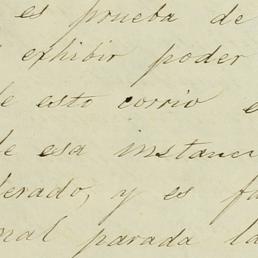 es prueba de
exhibir poder
de esto corrio e
de esa instanci
erado, y es fa
nal parada la